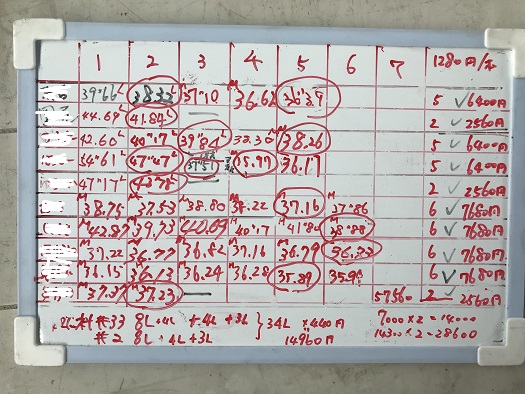 1 2 3 4 5 6 7 1280円/本
39"66 L 38.32 L 37"10 M 36.62 5 ✓ 6400円
44.69 L 41.84 L 2 ✓ 2560円
42.60 L 40"17 L 39"84 L 38.26 5 ✓ 6400円
L 47"47 L 37"51 15.97 36.17 5 ✓ 6400円
47"17 L 2 ✓ 2560円
M 38.75 37.53 M 38.80 38.22 M 37.16 37"86 6 ✓ 7680円
M 42.87 39.73 40.69 M 40"17 41"80 38"88 6 ✓ 7680円
M 37.22 36.77 M 36.82 M 37.16 M 36.79 6 ✓ 7680円
M 36.15 36.13 M 36.24 M 36.28 35.89 6 ✓ 7680円
M 37.37 M 37.23 57560 2 ✓ 2560円
#33 8L +4L +4L +3L } 34L × 440円
#2 8L +4L +3L 14960円
7000×2=14000
14300×2=28600